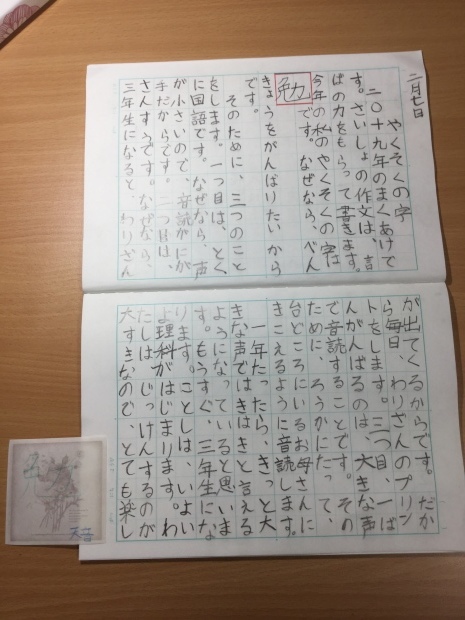 二月七日
やくそくの字
二〇十九年のまくあけで
す。さいしょの作文は、言
ばの力をもらって書きます。
今年の私のやくそくの字は
勉です。なぜなら、べん
きょうをがんばりたいから
です。
そのために、三つのこと
をします。一つ目は、とく
に国語です。なぜなら、声
が小さいので、音読がにが
手だからです。二つ目は、
さんすうです。なぜなら、
三年生になると、わりざん
が出てくるからです。だか
ら毎日、わりざんのプリン
トをします。三つ目、一ば
んがんばるのは、大きな声
で音読することです。その
ために、ろうかにたって、
台どころにいるお母さんに
きこえるように音読します。
一年たったら、きっと大
きな声ではきはきと言える
ようになっていると思いま
す。もうすぐ、三年生にな
ります。ことしは、いよい
よ理科がはじまります。わ
たしは、じっけんするのが
大すきなので、とても楽し
天音